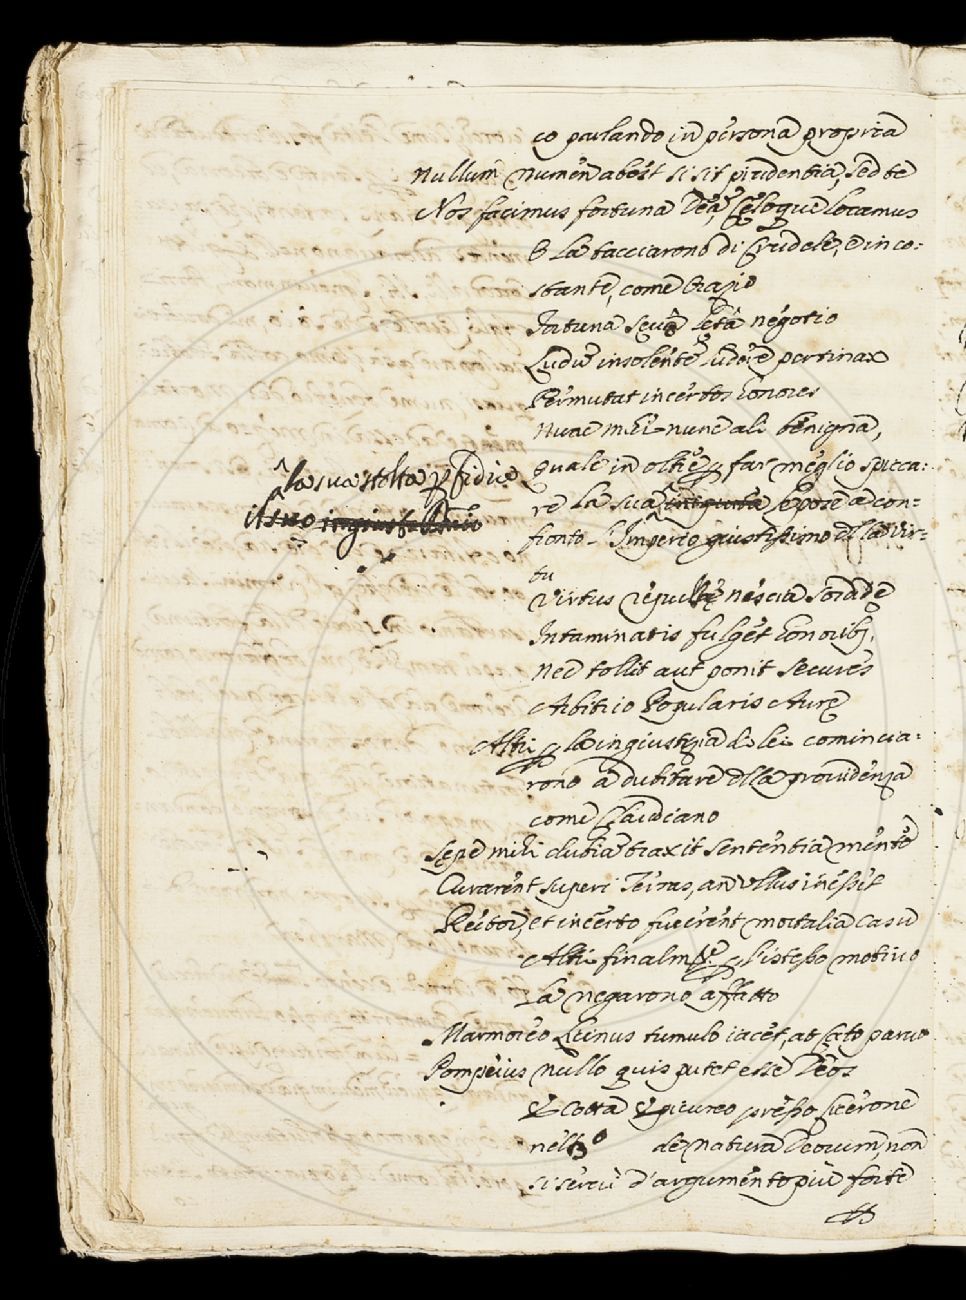 co parlando in persona propria
Nullum numen abest si sit prudentia, sed te
Nos facimus fortuna Dea, Cęloque locamus
E la tacciarono di Crudele, e inco:
stante, come Orazio
Fortuna sęuo lęta negotio
Ludum insolente ludere pertinax
Permutat incertos honores
Nunc mihi nunc alij benigna,
Quale in oltre p far meglio spicca:
^la sua stolta pfidia
re la sua ^ iniquita sepose a con=
il suo ingiusto
fronto l'Imperio giustissimo dlla Vir=
tu
Virtus repulsę nescia sordidę
Intaminatis fulget honoribj,
Nec sollit aut ponit secures
Arbitrio Popularis Aurę
Altri p la ingiustizia di lei comincia:
rono a dubitare dlla providenza
come Claudiano
Sępe mihi dubia traxit sententia mente
Curarent superi Terras, an Vllus inesset
Rector, et incerto fuerent mortalia casu
Altri finalmte p l'istesso motivo
la negarono affatto
Marmoreo Licinus tumulo iacet, at Cato parvo
Pompeius nullo quis putet esse Deos
E Cotta Epicureo presso Cicerone
nell 3º de natura Deorum, non
si servì d'argumento più forte